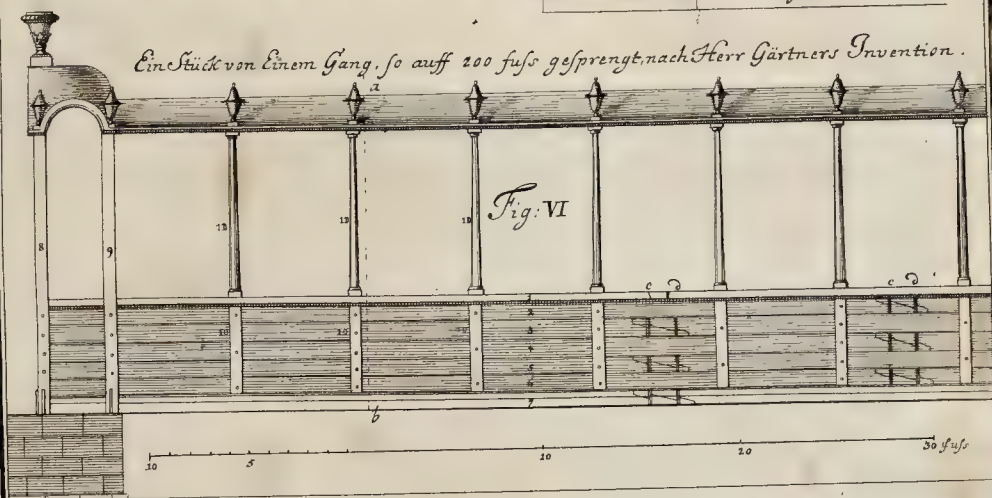 Ein Stück von Einem Gang, so auff 200 fuss gesprengt, nach Herr Gärtners Invention.
a
Fig: VI
8
9
1D 1D 1D
c d c d
1
2
10 10 10 3
4
5
6
7
b
10 5 10 20 30 fuss